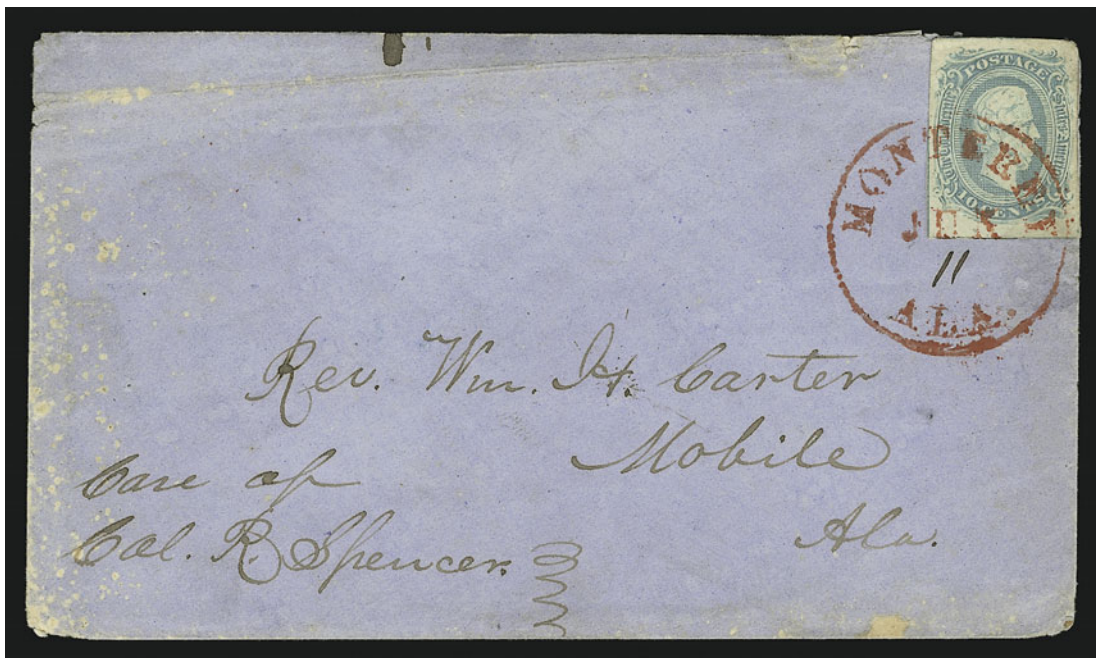 POSTAGE
CENTS
MONTEREY
11
ALA
Rev. Wm. H. Carter
Mobile
Ala.
Care of
Col. R. Spencer.